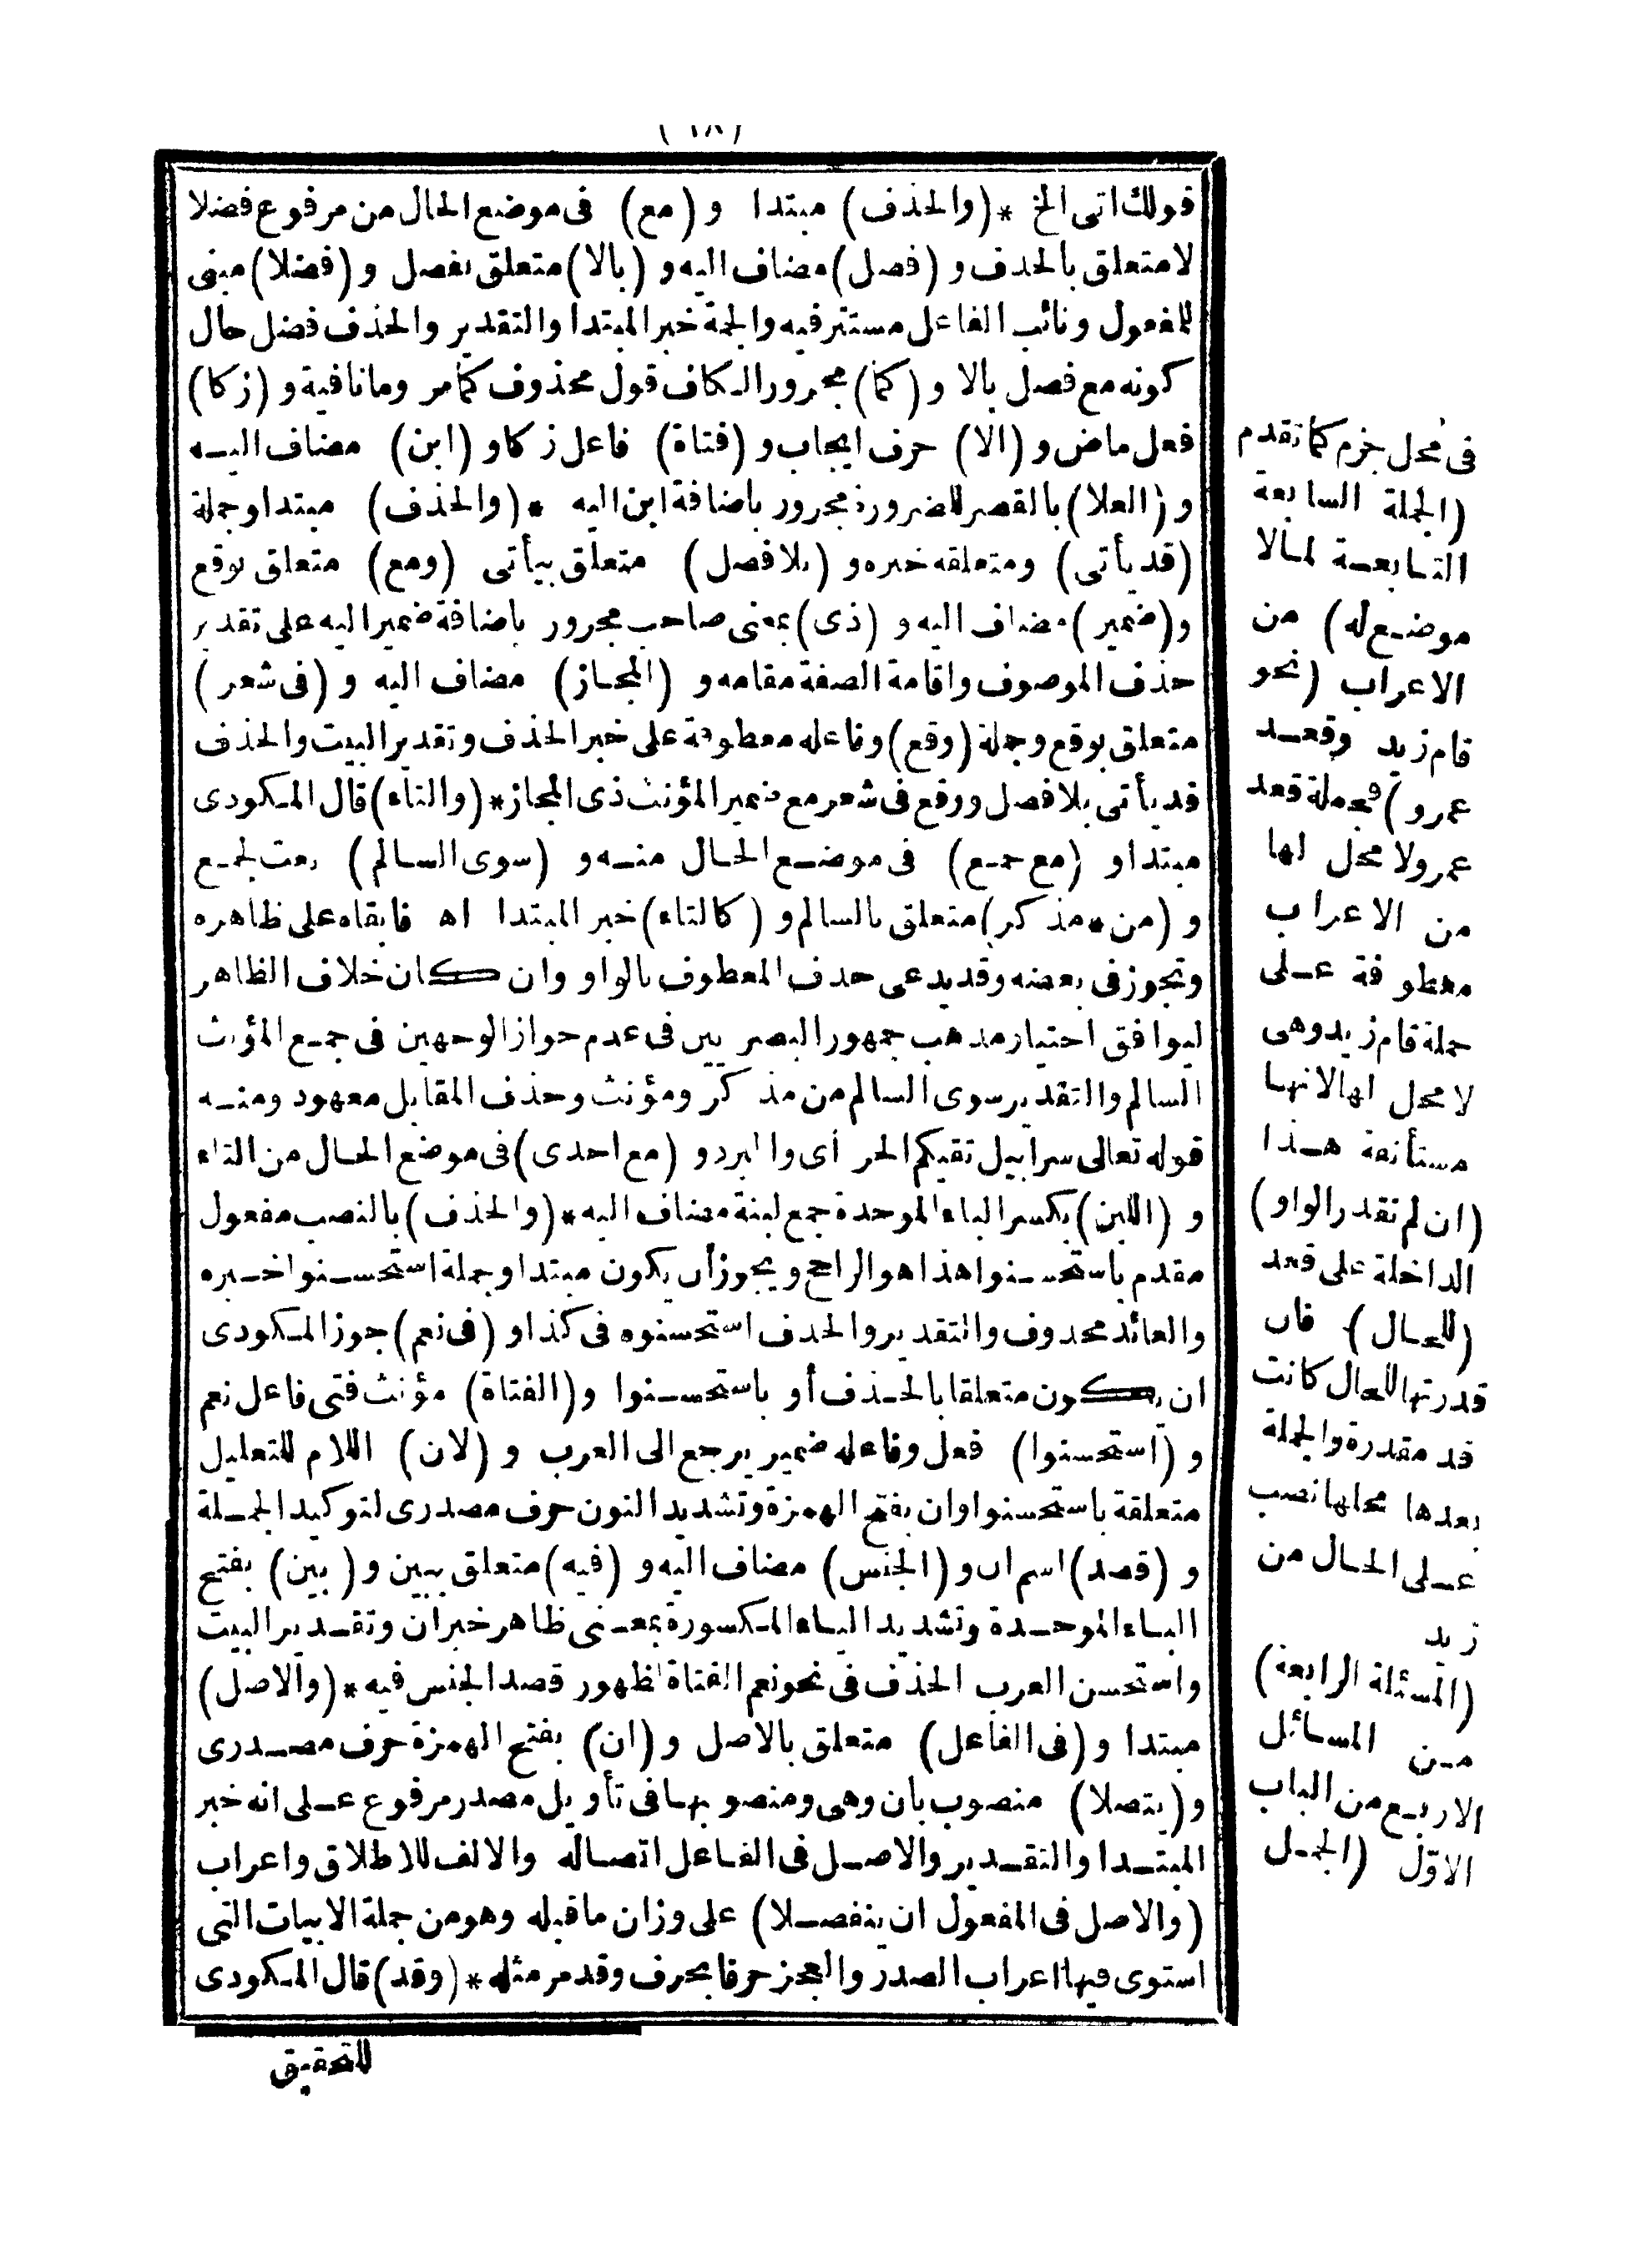 (٦٨)
قولك اتى الخ *(والحذف) مبتدا و (مع) فى موضع الحال من مرفوع فضلا
لا متعلق بالحذف و (فصل) مضاف اليه و (بالا) متعلق بفصل و (فضلا) مبنى
للمفعول ونائب الفاعل مستتر فيه والجملة خبر المبتدا والتقدير والحذف فضل حال
كونه مع فصل بالا و (كما) مجرور الكاف قول محذوف كما مر وما نافية و (زكا)
فعل ماض و (الا) حرف ايجاب و (فتاة) فاعل زكا و (ابن) مضاف اليه
و (العلا) بالقصر للضرورة مجرور باضافة ابن اليه *(والحذف) مبتدا وجملة
(قد يأتى) ومتعلقه خبره و (بلا فصل) متعلق بيأتى (ومع) متعلق بوقع
و (ضمير) مضاف اليه و (ذى) بمعنى صاحب مجرور باضافة ضمير اليه على تقدير
حذف الموصوف واقامة الصفة مقامه و (المجاز) مضاف اليه و (فى شعر)
متعلق بوقع وجملة (وقع) وفاعله معطوفة على خبر الحذف وتقدير البيت والحذف
قد يأتى بلا فصل ووقع فى شعر مع ضمير المؤنث ذى المجاز *(والتاء) قال المكودى
مبتدا و (مع جمع) فى موضع الحال منه و (سوى السالم) نعت لجمع
و (من * مذكر) متعلق بالسالم و (كالتاء) خبر المبتدا اه فابقاه على ظاهره
وتجوز فى بعضه وقد يدعى حذف المعطوف بالواو وان كان خلاف الظاهر
ليوافق اختيار مذهب جمهور البصريين فى عدم جواز الوجهين فى جمع المؤنث
السالم والتقدير سوى السالم من مذكر ومؤنث وحذف المقابل معهود ومنه
قوله تعالى سرابيل تقيكم الحر أى والبرد و (مع احدى) فى موضع الحال من التاء
و (اللبن) بكسر الباء الموحدة جمع لبنة مضاف اليه *(والحذف) بالنصب مفعول
مقدم باستحسنوا هذا هو الراجح ويجوز أن يكون مبتدا وجملة استحسنوا خبره
والعائد محذوف والتقدير والحذف استحسنوه فى كذا و (فى نعم) جوز المكودى
ان يكون متعلقا بالحذف أو باستحسنوا و (الفتاة) مؤنث فتى فاعل نعم
و (استحسنوا) فعل وفاعله ضمير يرجع الى العرب و (لان) اللام للتعليل
متعلقة باستحسنوا وان بفتح الهمزة وتشديد النون حرف مصدرى لتوكيد الجملة
و (قصد) اسم ان و (الجنس) مضاف اليه و (فيه) متعلق ببين و (بين) بفتح
الباء الموحدة وتشديد الياء المكسورة بمعنى ظاهر خبر ان وتقدير البيت
واستحسن العرب الحذف فى نحو نعم الفتاة لظهور قصد الجنس فيه *(والاصل)
مبتدا و (فى الفاعل) متعلق بالاصل و (ان) بفتح الهمزة حرف مصدرى
و (يتصلا) منصوب بان وهى ومنصوبها فى تأويل مصدر مرفوع على انه خبر
المبتدا والتقدير والاصل فى الفاعل اتصاله والالف للاطلاق واعراب
(والاصل فى المفعول ان ينفصلا) على وزان ما قبله وهو من جملة الابيات التى
استوى فيها اعراب الصدر والعجز حرفا بحرف وقد مر مثله *(وقد) قال المكودى
للتحقيق
فى محل جزم كما تقدم
(الجملة السابعة
التابعة لما لا
موضع له) من
الاعراب (نحو
قام زيد وقعد
عمرو) فجملة قعد
عمرو لا محل لها
من الاعراب
معطوفة على
جملة قام زيد وهى
لا محل لها لانها
مستأنفة هذا
(ان لم تقدر الواو)
الداخلة على قعد
(للحال) فان
قدرتها للحال كانت
قد مقدرة والجملة
بعدها محلها نصب
على الحال من
زيد
(المسئلة الرابعة)
من المسائل
الاربع من الباب
الاول (الجمل